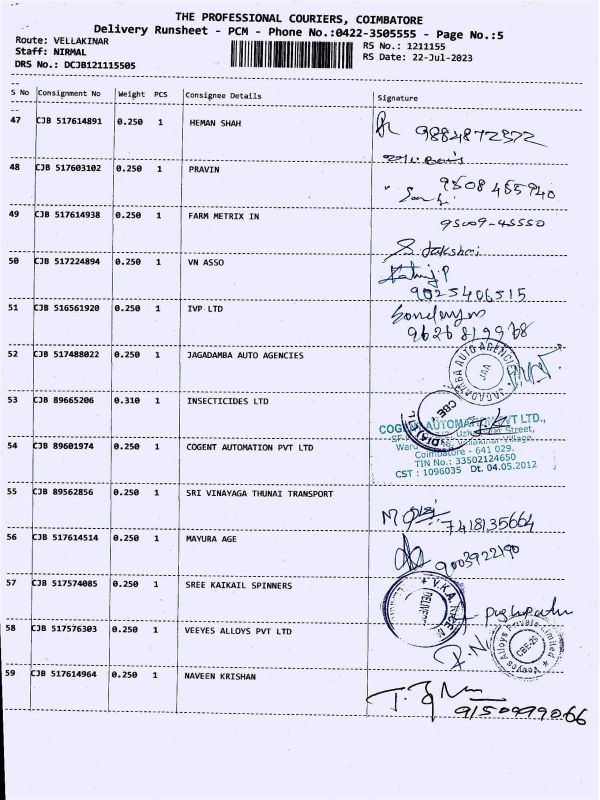 THE PROFESSIONAL COURIERS, COIMBATORE
Delivery Runsheet - PCM - Phone No.:0422-3505555 - Page No.:5
Route: VELLAKINAR
Staff: NIRMAL
DRS No.: DCJB121115505
RS No.: 1211155
RS Date: 22-Jul-2023
S No Consignment No Weight PCS Consignee Details Signature
47 CJB 517614891 0.250 1 HEMAN SHAH
9884872372
48 CJB 517603102 0.250 1 PRAVIN
9508 455940
49 CJB 517614938 0.250 1 FARM METRIX IN
95009-45550
50 CJB 517224894 0.250 1 VN ASSO
9025406515
51 CJB 516561920 0.250 1 IVP LTD
52 CJB 517488022 0.250 1 JAGADAMBA AUTO AGENCIES
JAGADAMBA AUTO AGENCIES
JAA
53 CJB 89665206 0.310 1 INSECTICIDES LTD
CBE
54 CJB 89601974 0.250 1 COGENT AUTOMATION PVT LTD
COGENT AUTOMATION PVT LTD.,
Vellakinar Village,
Coimbatore - 641 029.
TIN No.: 33502124650
CST : 1096035 Dt. 04.05.2012
55 CJB 89562856 0.250 1 SRI VINAYAGA THUNAI TRANSPORT
7418135664
56 CJB 517614514 0.250 1 MAYURA AGE
9003922190
57 CJB 517574085 0.250 1 SREE KAIKAIL SPINNERS
V.K.A.
58 CJB 517576303 0.250 1 VEEYES ALLOYS PVT LTD
Veeyes Alloys Private Limited
CBE-29
59 CJB 517614964 0.250 1 NAVEEN KRISHAN
9150999066